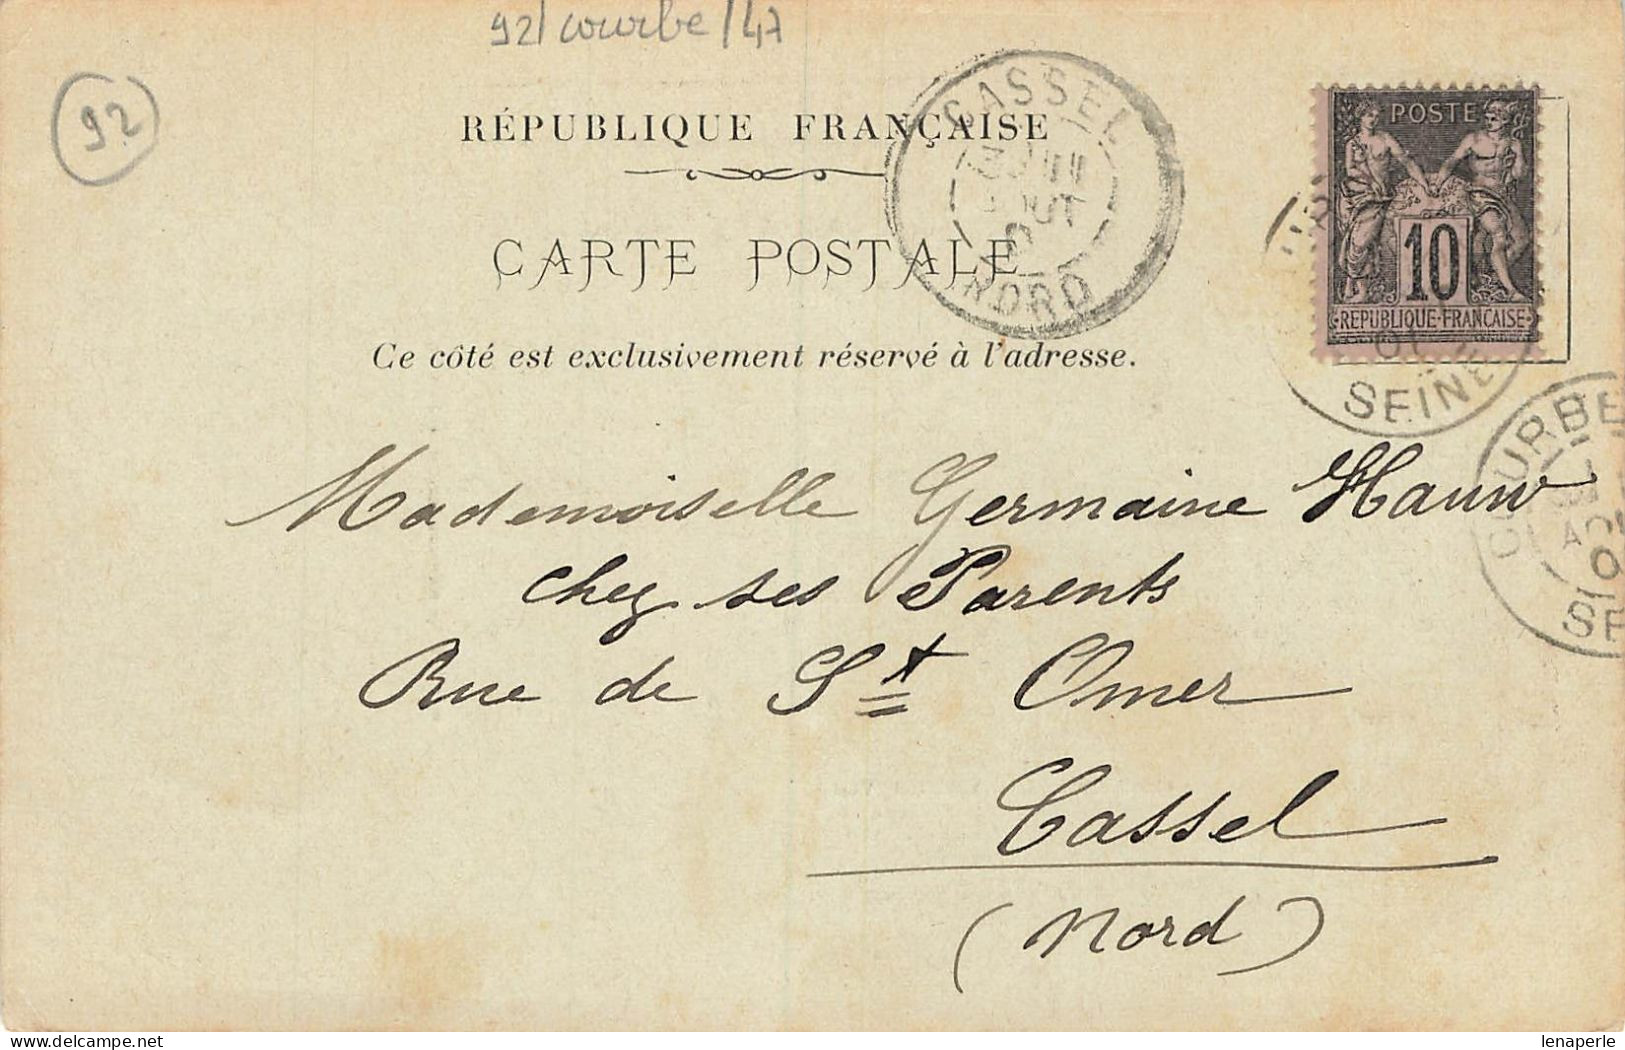 92/courbe/47
92
RÉPUBLIQUE FRANÇAISE
CARTE POSTALE
Ce côté est exclusivement réservé à l'adresse.
CASSEL
NORD
POSTE
10
REPUBLIQUE FRANÇAISE
SEINE
COURBE
Mademoiselle Germaine Hauw
chez ses Parents
Rue de St Omer
Cassel
(Nord)
delcampe.net
lenaperle